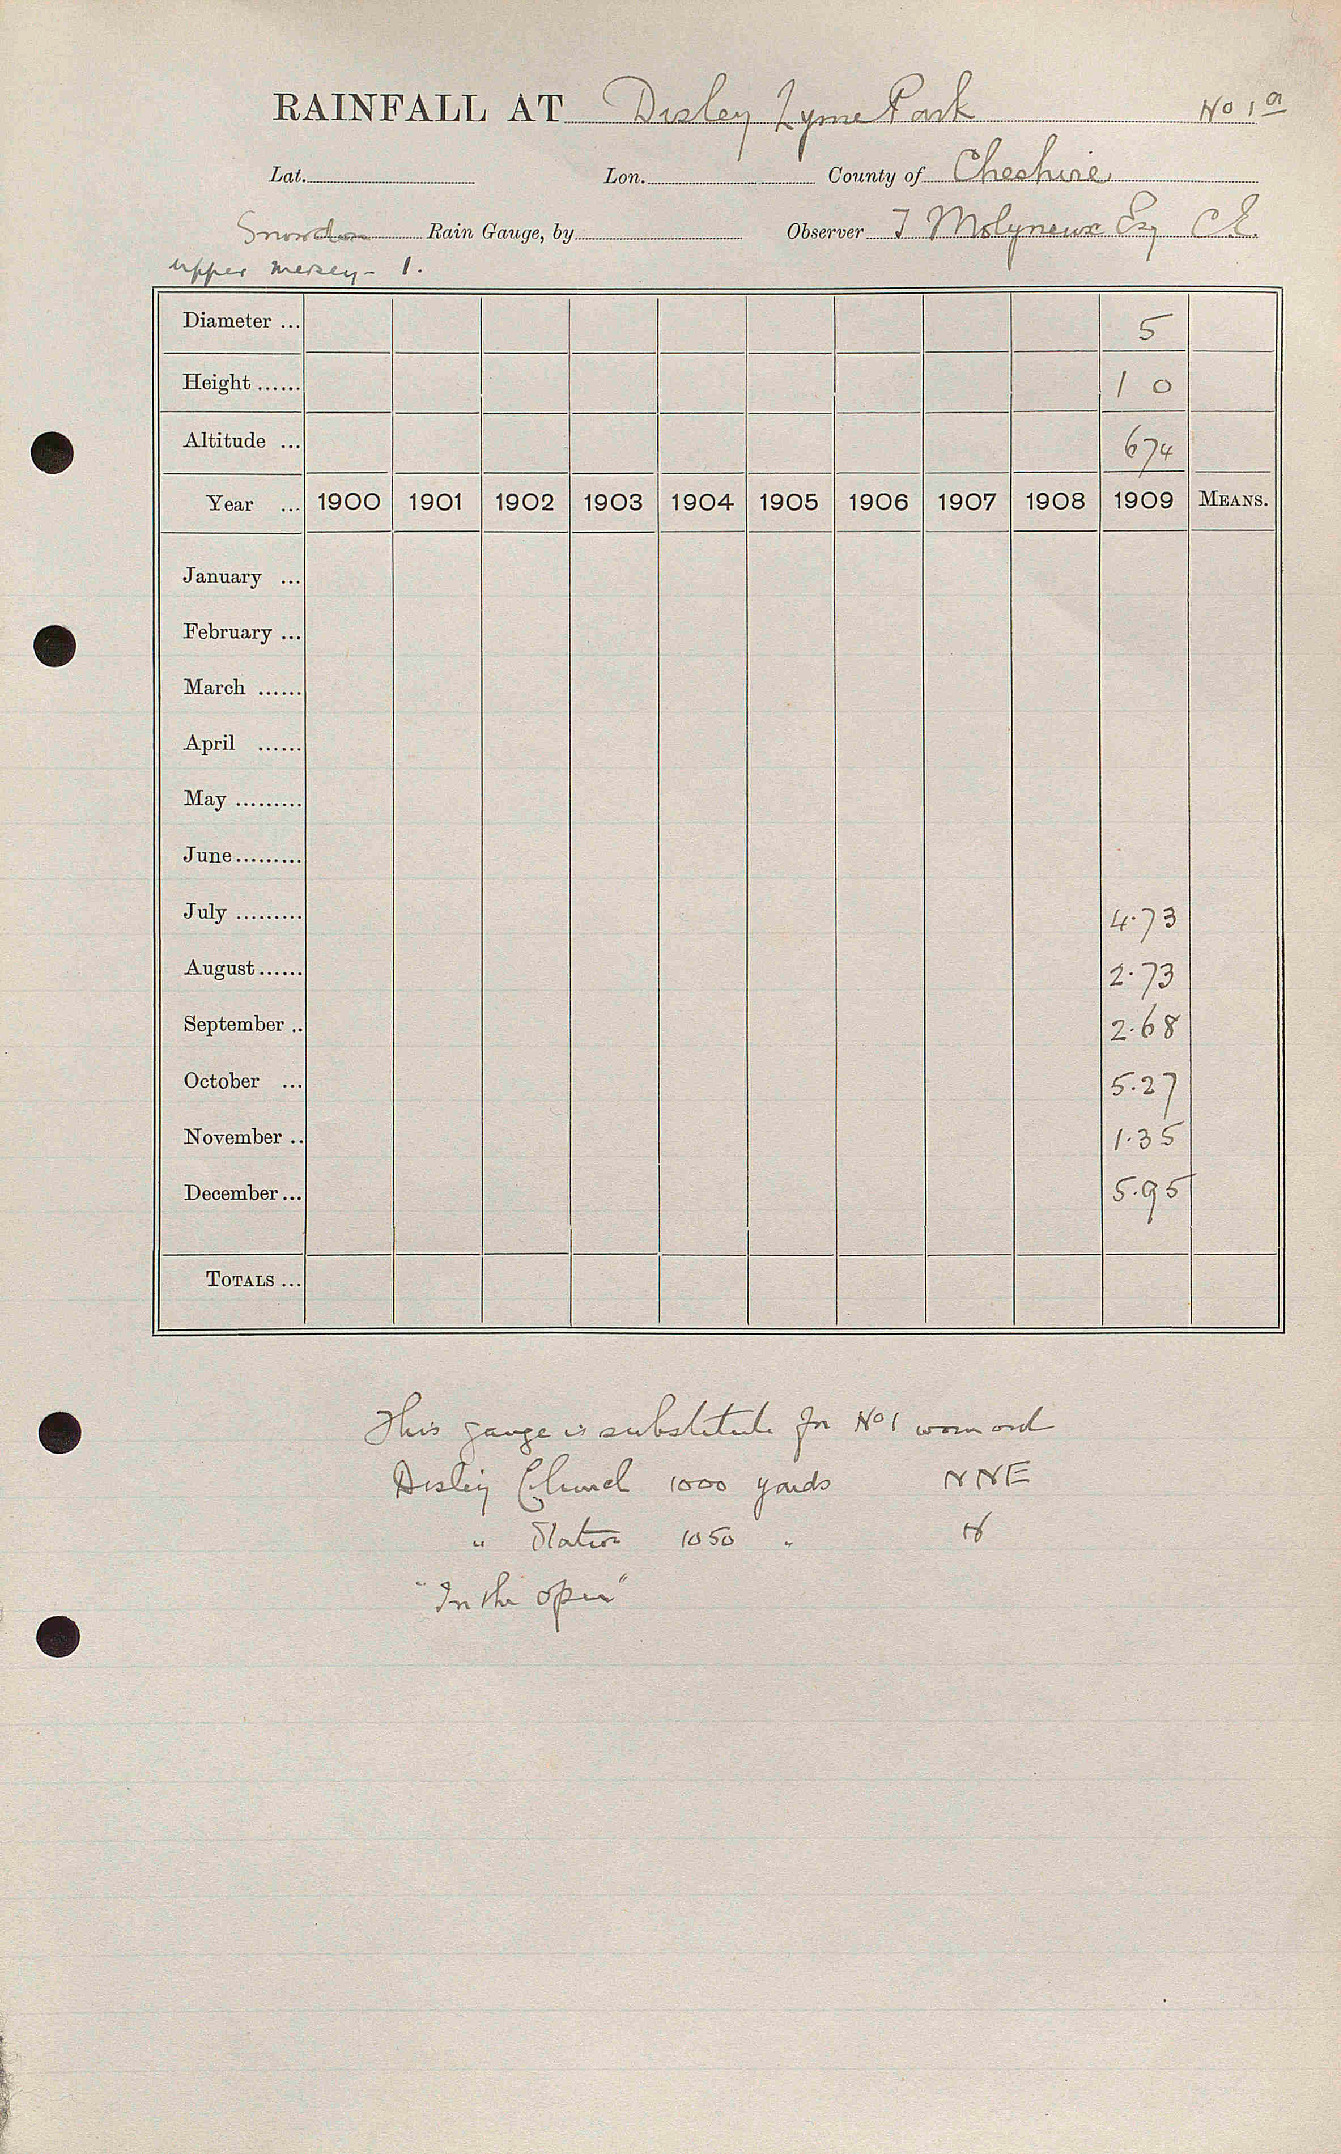 RAINFALL AT Disley Lyme Park No 1a
Lat. Lon. County of Cheshire
Snowdon Rain Gauge, by Observer T Molyneux Esq CE.
upper mersey - 1.
Diameter ... 5
Height ...... 1 0
Altitude ... 674
Year ... 1900 1901 1902 1903 1904 1905 1906 1907 1908 1909 MEANS.
January ...
February ...
March ......
April ......
May .........
June.........
July ......... 4.73
August...... 2.73
September .. 2.68
October ... 5.27
November .. 1.35
December... 5.95
TOTALS ...
This gauge is substitute for No 1 worn out
Disley Church 1000 yards NNE
" Station 1050 " N
"In the open"